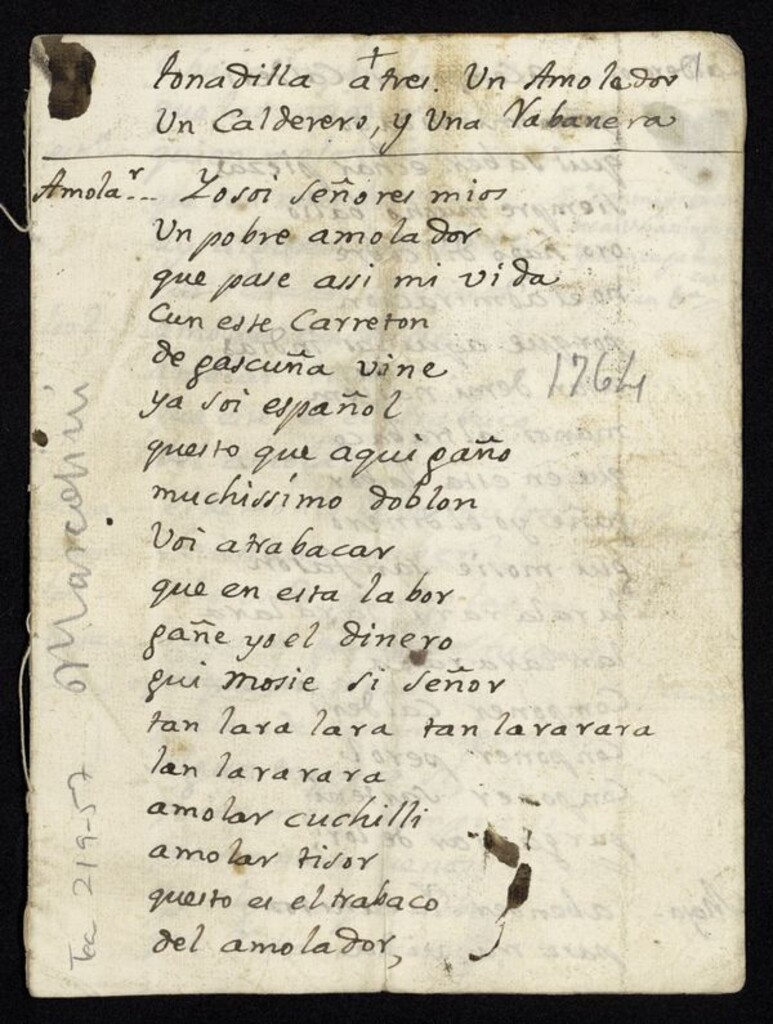 +
tonadilla a tres. Un Amolador
Un Calderero, y Una Rabanera
Amola.r... Yo soi señores mios
Un pobre amolador
que pase assi mi vida
Cun este Carreton
de gascuña vine
1764
ya soi español
questo que aqui gaño
muchissimo doblon
Voi a trabacar
que en esta labor
gañe yo el dinero
qui Mosie si señor
tan lara lara tan lararara
lan lararara
amolar cuchilli
amolar tisor
questo es el trabaco
del amolador,
Marcolini
Tea 219-57